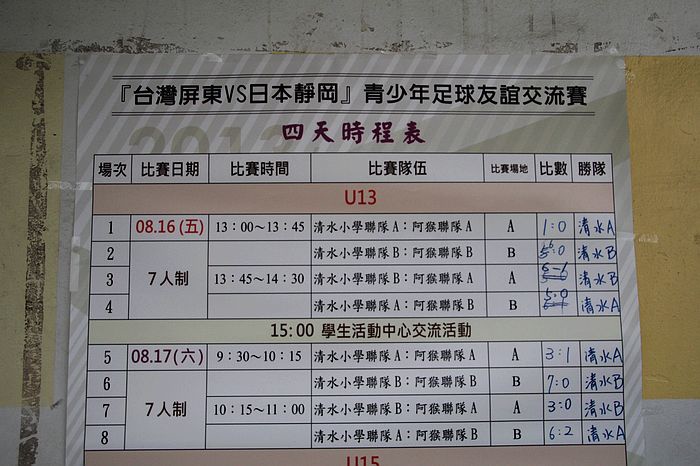 『台灣屏東VS日本靜岡』青少年足球友誼交流賽
2013
四天時程表
場次 比賽日期 比賽時間 比賽隊伍 比賽場地 比數 勝隊
U13
1 08.16(五) 13:00～13:45 清水小學聯隊A：阿猴聯隊A A 1:0 清水A
2 清水小學聯隊B：阿猴聯隊B B :0 清水B
3 7人制 13:45～14:30 清水小學聯隊B：阿猴聯隊A A 清水B
4 清水小學聯隊A：阿猴聯隊B B 5:0 清水A
15:00 學生活動中心交流活動
5 08.17(六) 9:30～10:15 清水小學聯隊A：阿猴聯隊A A 3:1 清水A
6 清水小學聯隊B：阿猴聯隊B B 7:0 清水B
7 7人制 10:15～11:00 清水小學聯隊B：阿猴聯隊A A 3:0 清水B
8 清水小學聯隊A：阿猴聯隊B B 6:2 清水A
U15